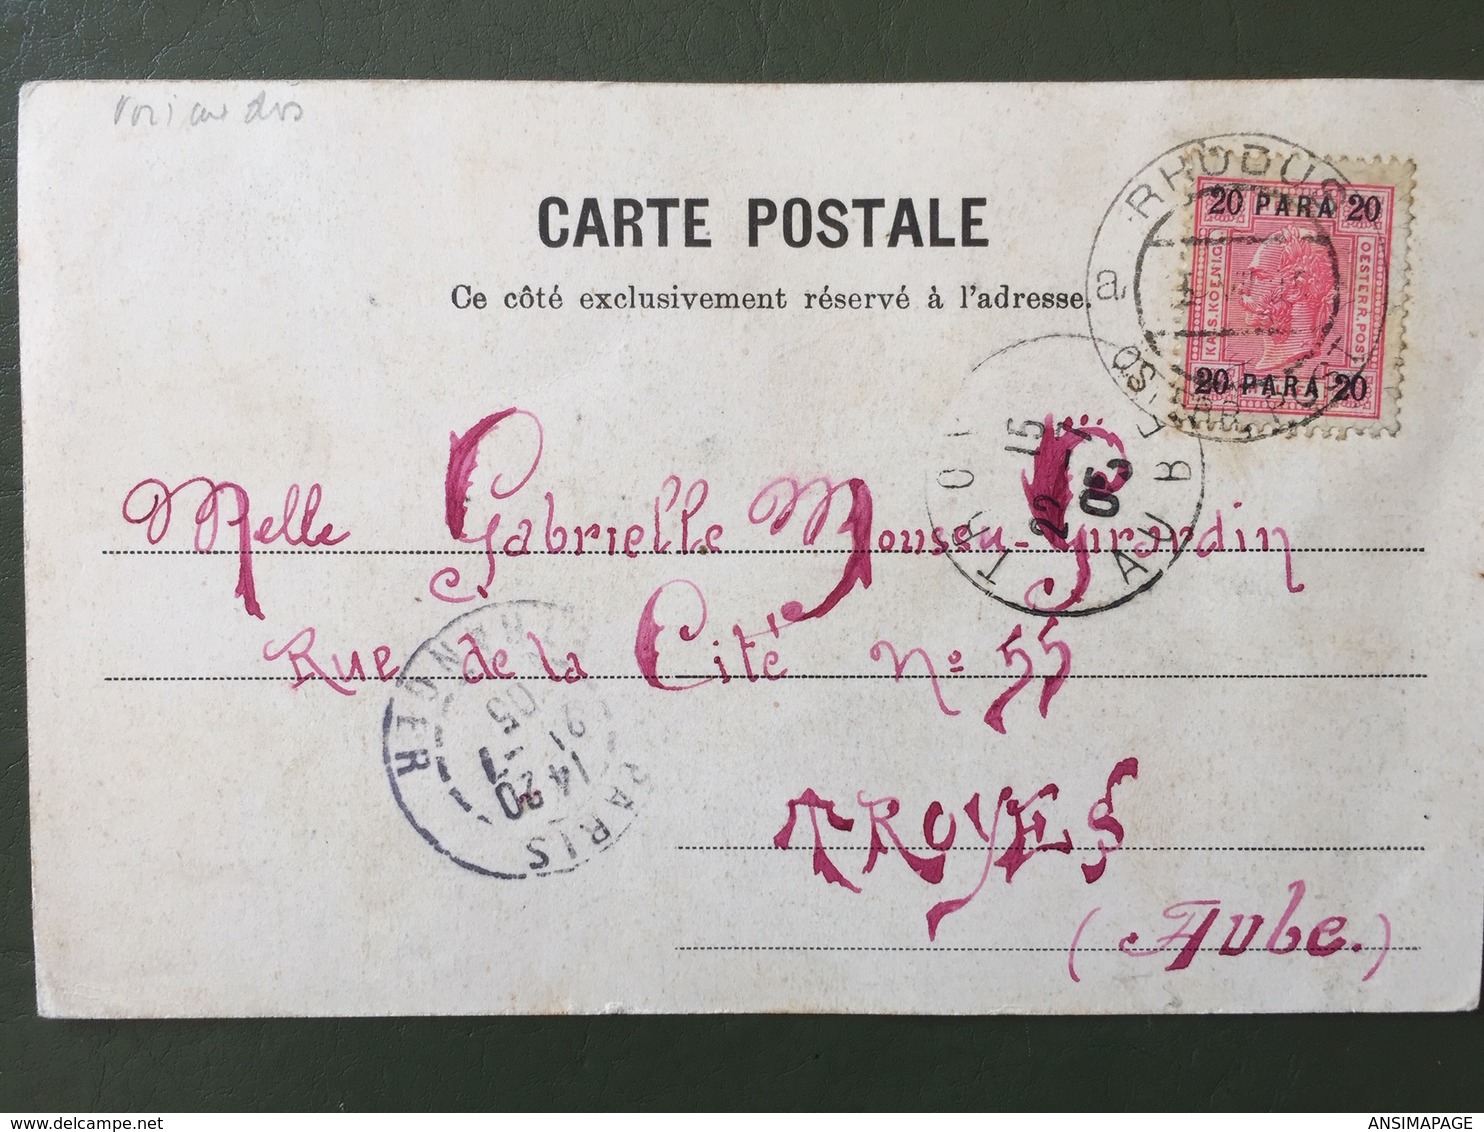 CARTE POSTALE
Ce côté exclusivement réservé à l'adresse.
RHODUS
a
20 PARA 20
KAIS. KOENIGL.
OESTERR. POST
20 PARA 20
15
22 - 7
05
AUBE
Melle Gabrielle Mouseu-Girardin
Rue de la Cité Nº 55
TROYES
(Aube.)
PARIS
ETRANGER
14 20
21 - 7
05
delcampe.net
ANSIMAPAGE